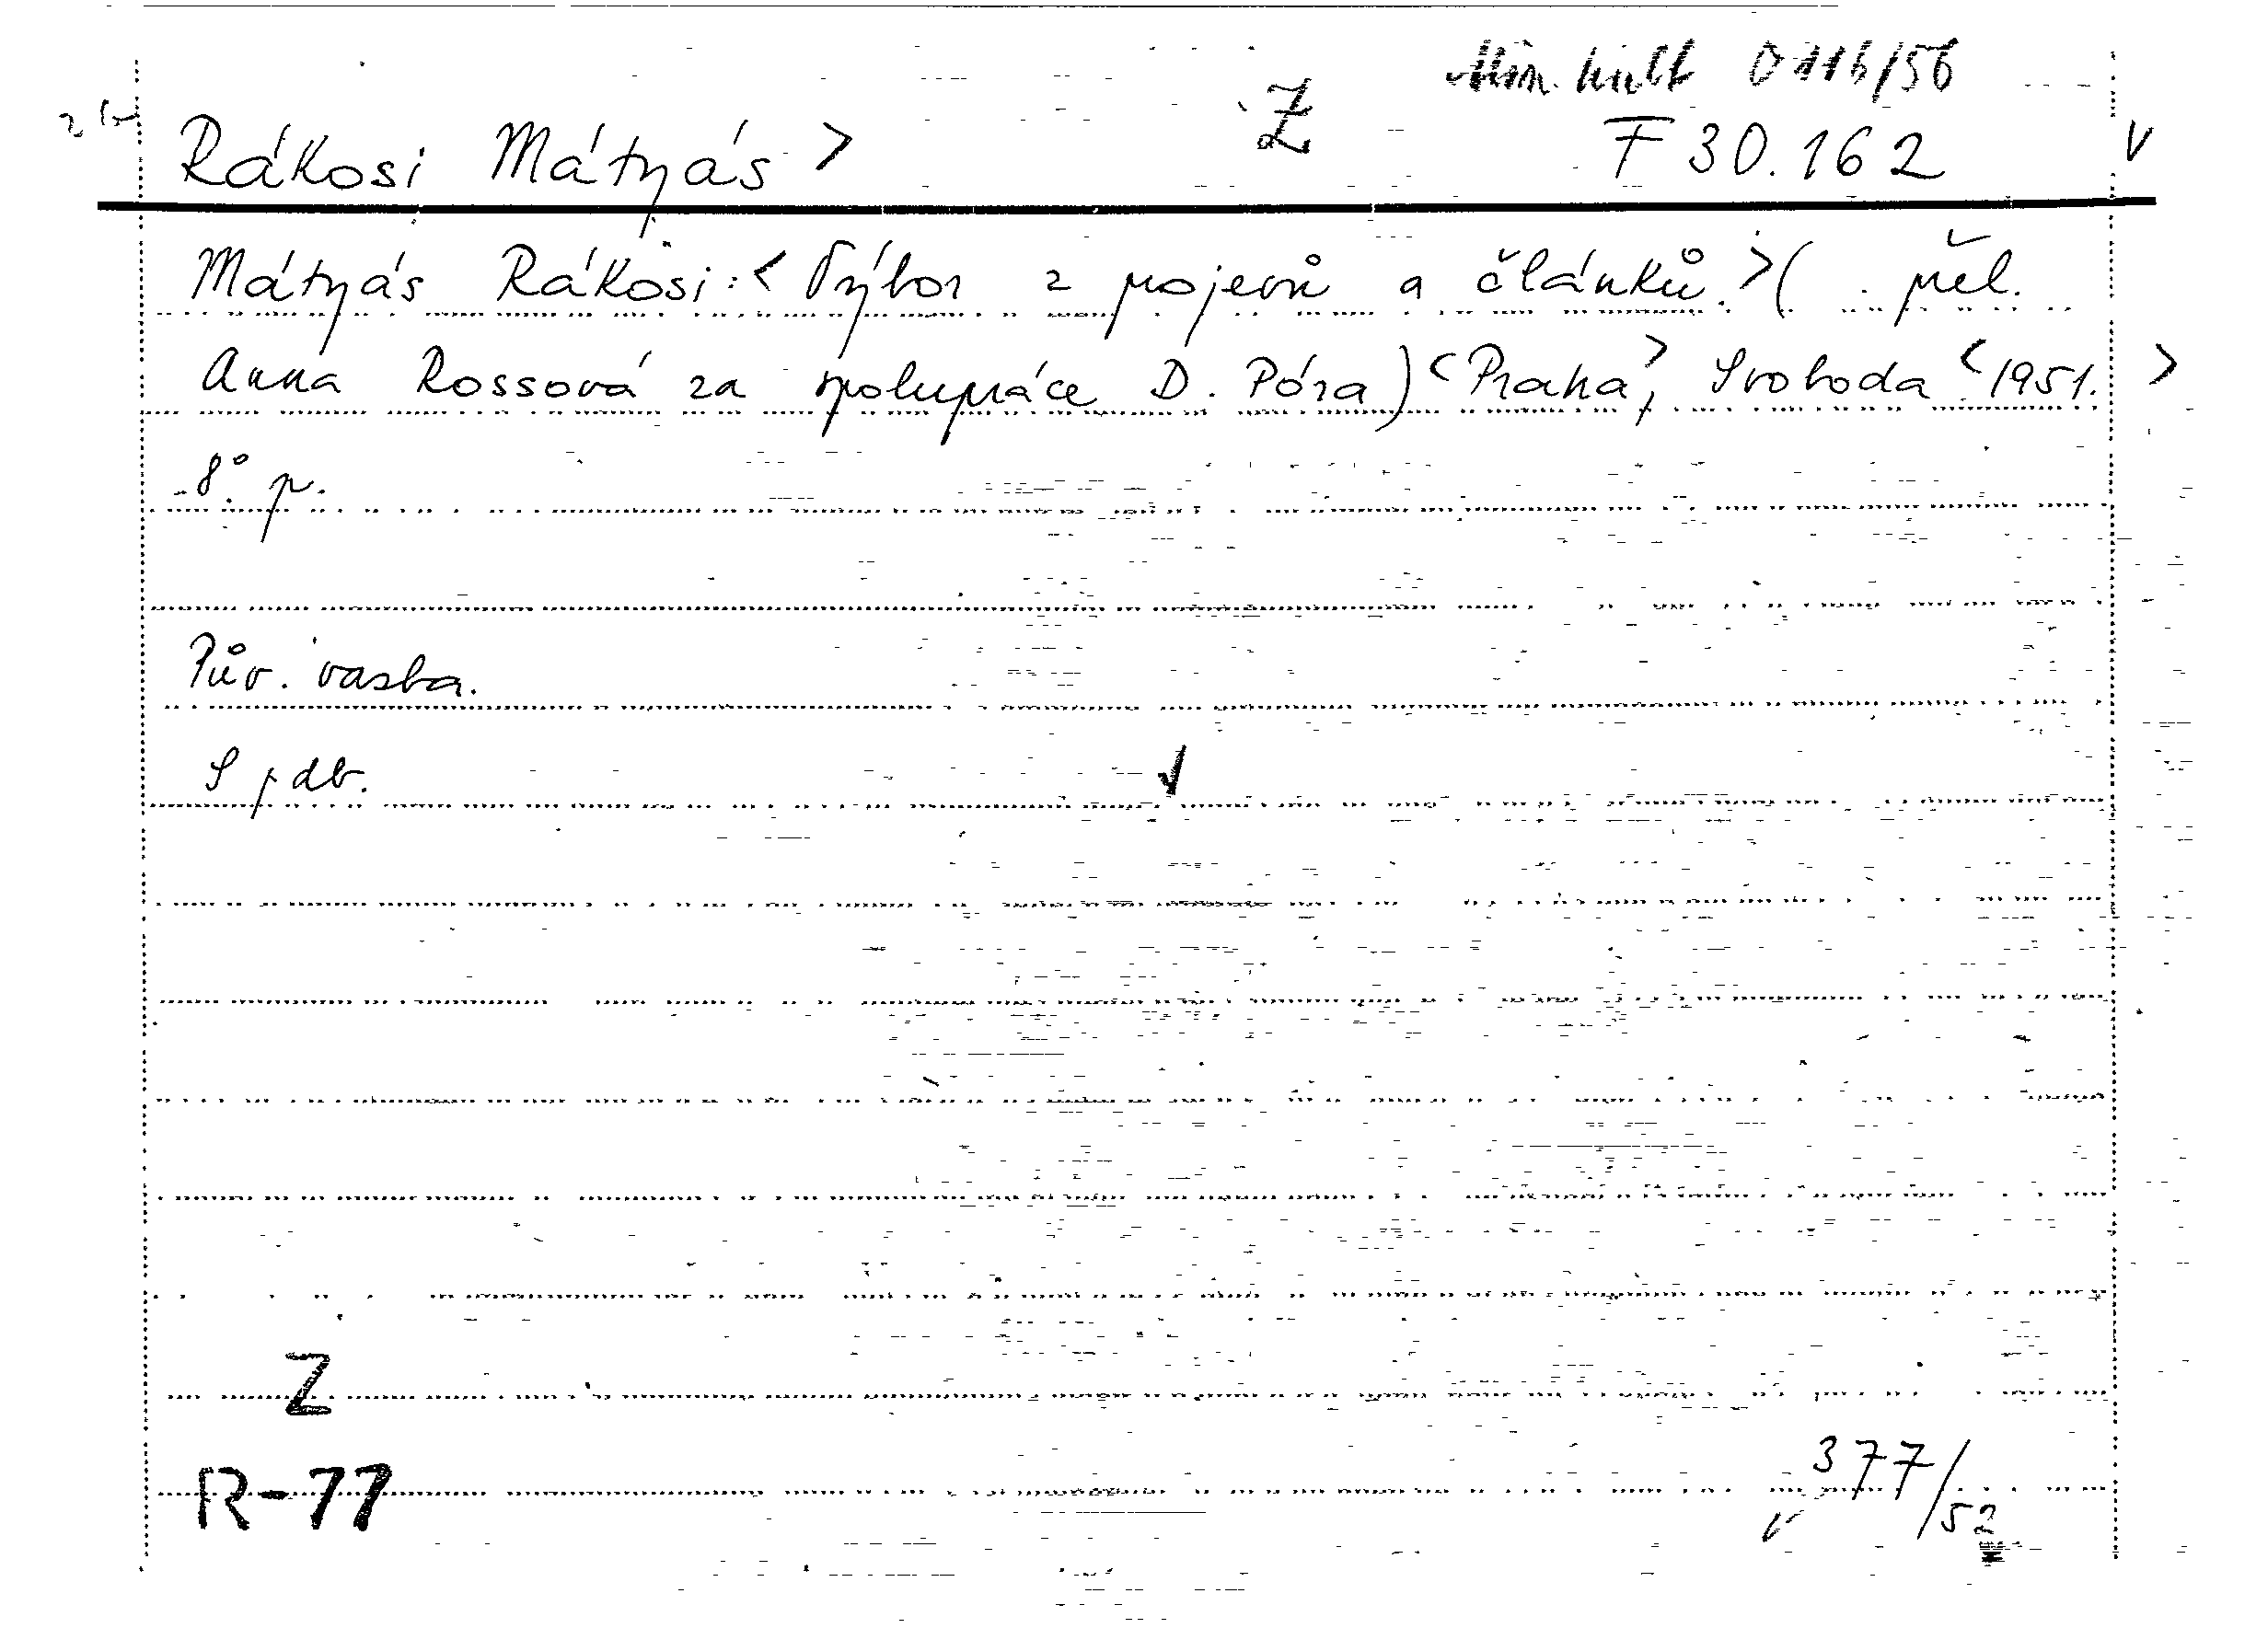 Min. kult 0116/56
Rákosi Mátyás > Z F 30.162 v
Mátyás Rákosi: < Výbor z projevů a článků. > ( přel.
Anna Rossová za spolupráce D. Póra) < Praha >, Svoboda < 1951. >
8° p.
Pův. vazba.
S pdb.
Z
R-77
377/52